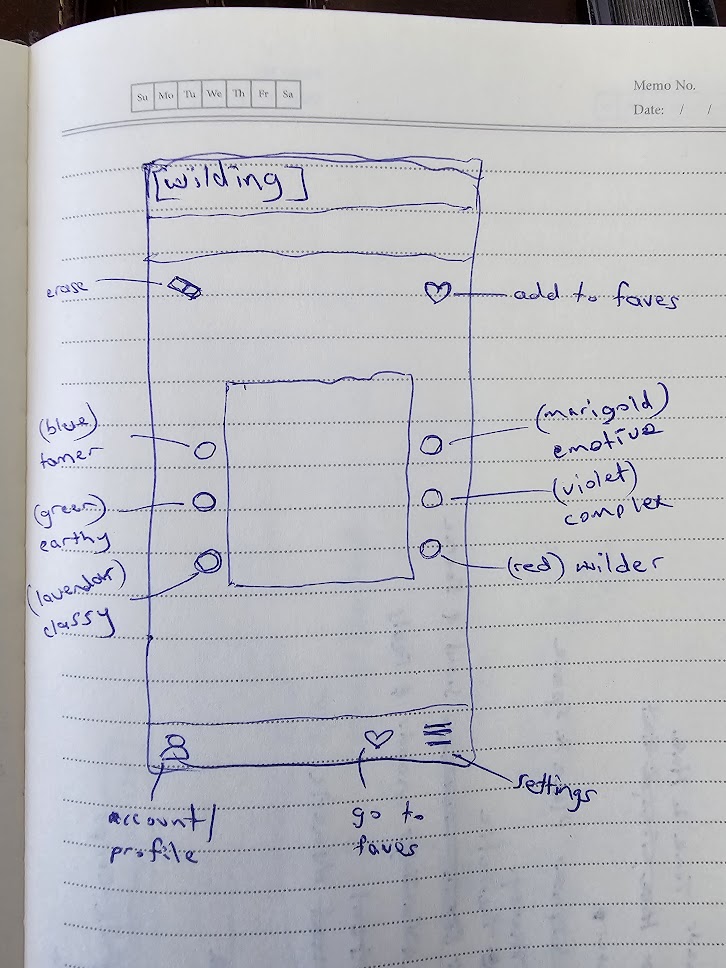 Su Mo Tu We Th Fr Sa
Memo No.
Date: / /
[wilding]
erase
add to faves
(blue)
tamer
(green)
earthy
(lavendar)
classy
(marigold)
emotive
(violet)
complex
(red) wilder
account/
profile
go to
faves
settings